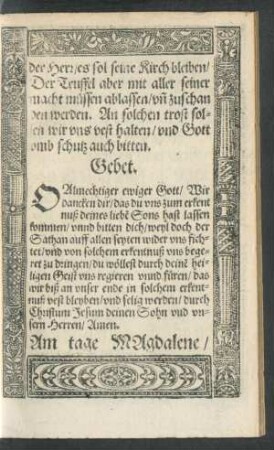 der Herr/es sol seine Kirch bleiben/
Der Teuffel aber mit aller seiner
macht müssen ablassen/vñ zuschan
den werden. An solchen trost sol-
len wir vns vest halten/vnd Gott
vmb schutz auch bitten.
Gebet.
O Almechtiger ewiger Gott/ Wir
dancken dir/das du vns zum erkent
nuß deines liebē Sons hast lassen
kommen/ vnnd bitten dich/weyl doch der
Sathan auff allen seyten wider vns fich-
tet/vnd von solchem erkentnuß vns bege-
ret zu dringen/du wöllest durch deinē hei-
ligen Geist vns regieren vnnd füren/das
wir biß an vnser ende in solchem erkent-
nuß vest bleyben/vnd selig werden/ durch
Christum Jesum deinen Sohn vnd vn-
sern Herren/ Amen.
Am tage MAgdalene/